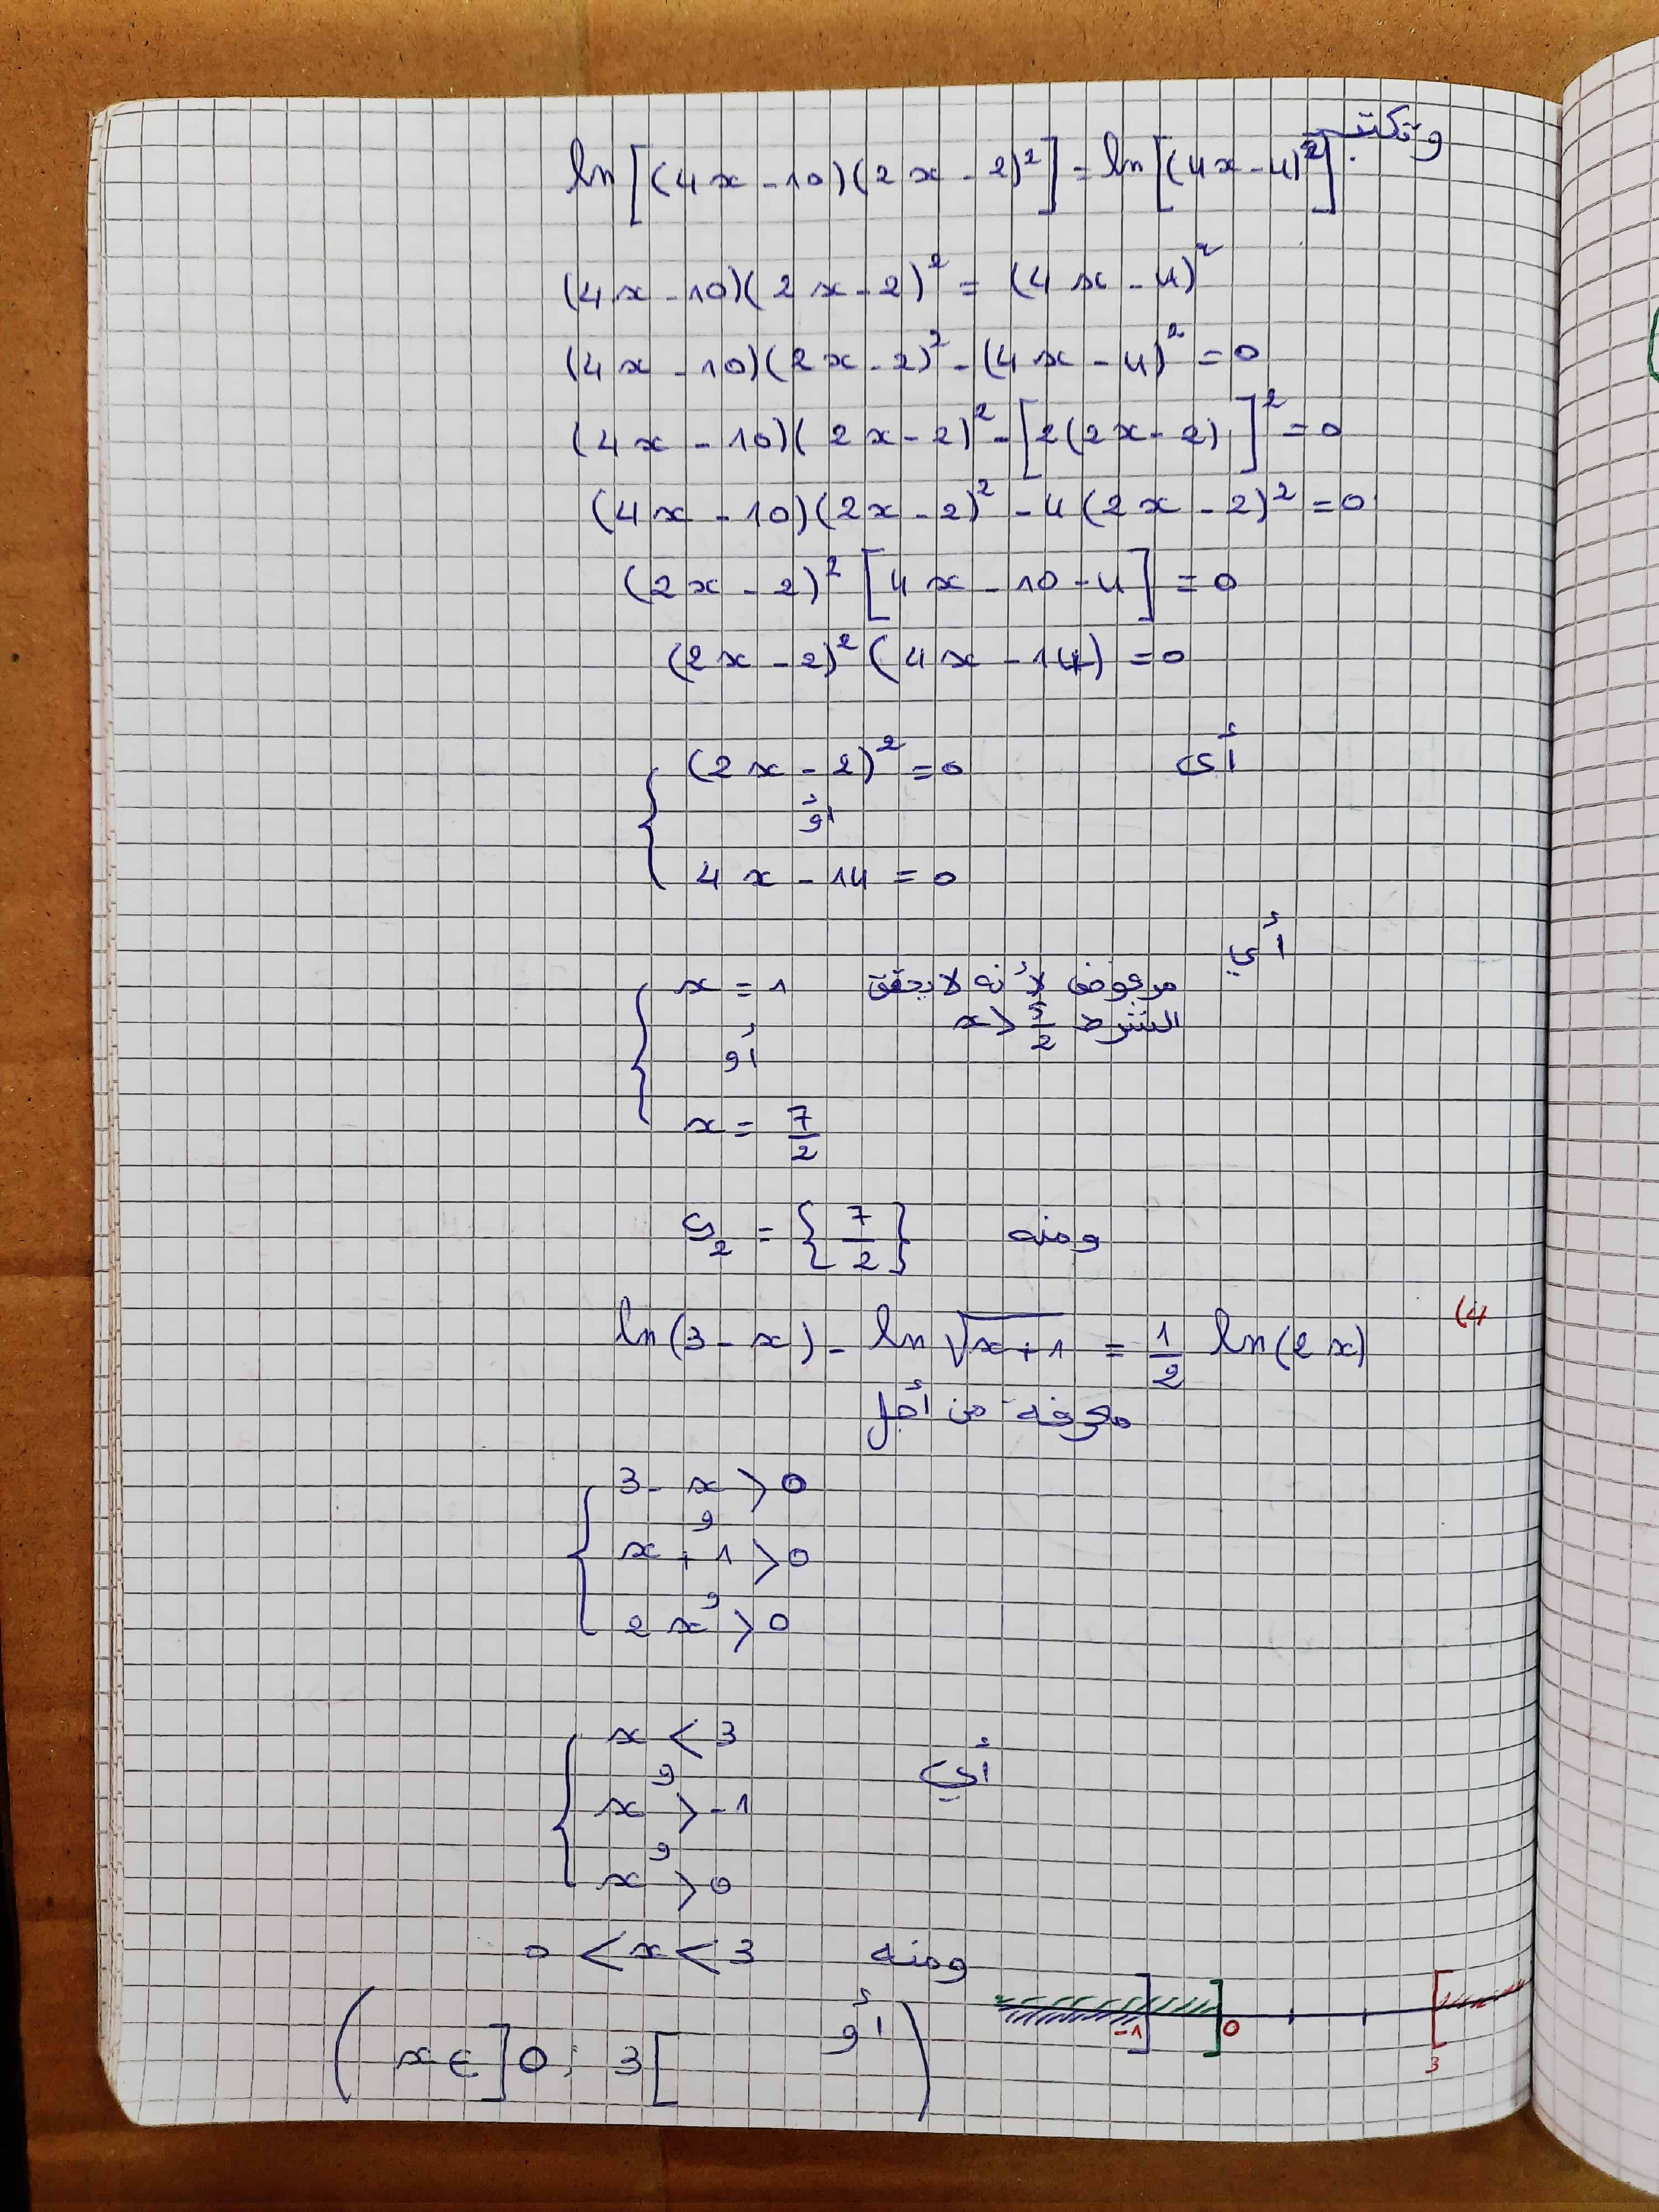 وتكتب
ln[(4x - 10)(2x - 2)²] = ln[(4x - 4)²]
(4x - 10)(2x - 2)² = (4x - 4)²
(4x - 10)(2x - 2)² - (4x - 4)² = 0
(4x - 10)(2x - 2)² - [2(2x - 2)]² = 0
(4x - 10)(2x - 2)² - 4(2x - 2)² = 0
(2x - 2)² [4x - 10 - 4] = 0
(2x - 2)² (4x - 14) = 0
أي
(2x - 2)² = 0
أو
4x - 14 = 0
أي
x = 1 مرفوض لأنه لا يحقق
الشرط x > 5/2
أو
x = 7/2
ومنه S₂ = {7/2}
(4
ln(3 - x) - ln√(x + 1) = 1/2 ln(2x)
معرفة من أجل
3 - x > 0
و
x + 1 > 0
و
2x > 0
أي
x < 3
و
x > -1
و
x > 0
ومنه 0 < x < 3
أو (x ∈ ]0 ; 3[)
-1 0 3